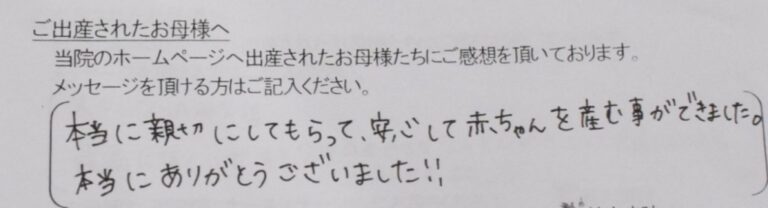 ご出産されたお母様へ
当院のホームページへ出産されたお母様たちにご感想を頂いております。
メッセージを頂ける方はご記入ください。
本当に親切にしてもらって、安心して赤ちゃんを産む事ができました。
本当にありがとうございました!!